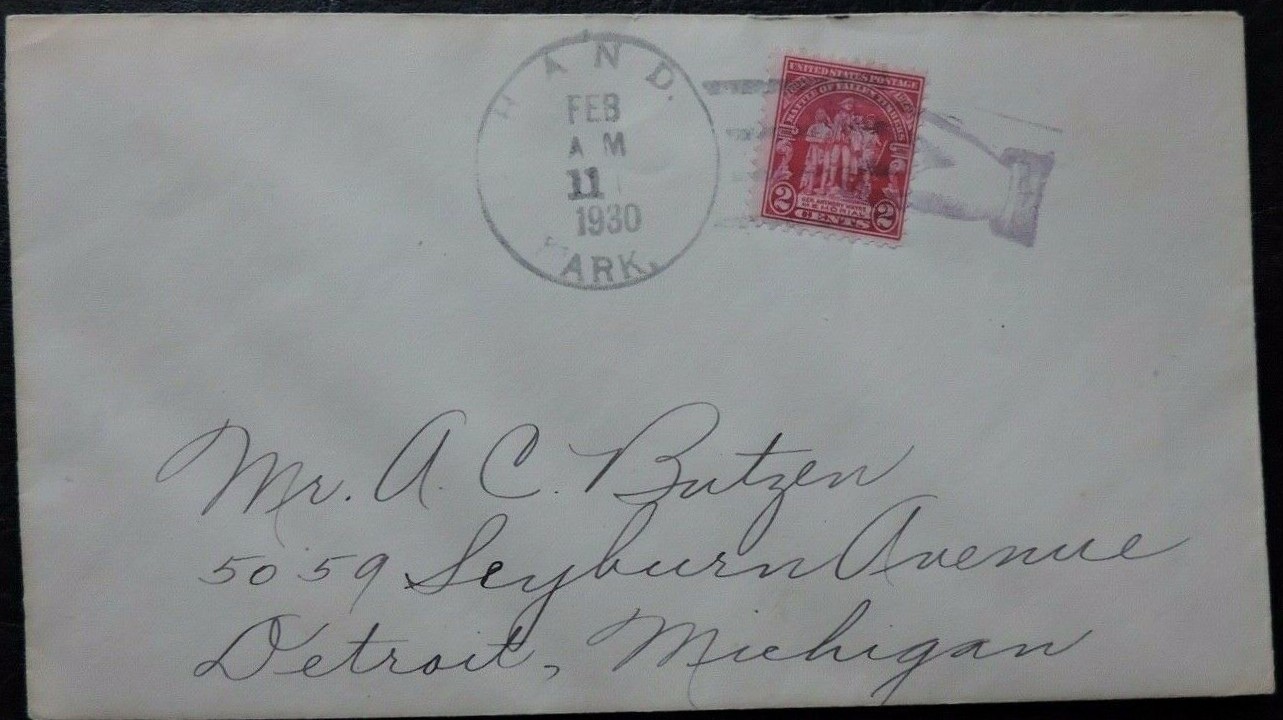 HAND.
FEB
AM
11
1930
PARK.
UNITED STATES POSTAGE
BATTLE OF FALLEN TIMBERS
GEN. ANTHONY WAYNE
MEMORIAL
2 CENTS 2
Mr. A. C. Butzen
5059 Seyburn Avenue
Detroit, Michigan